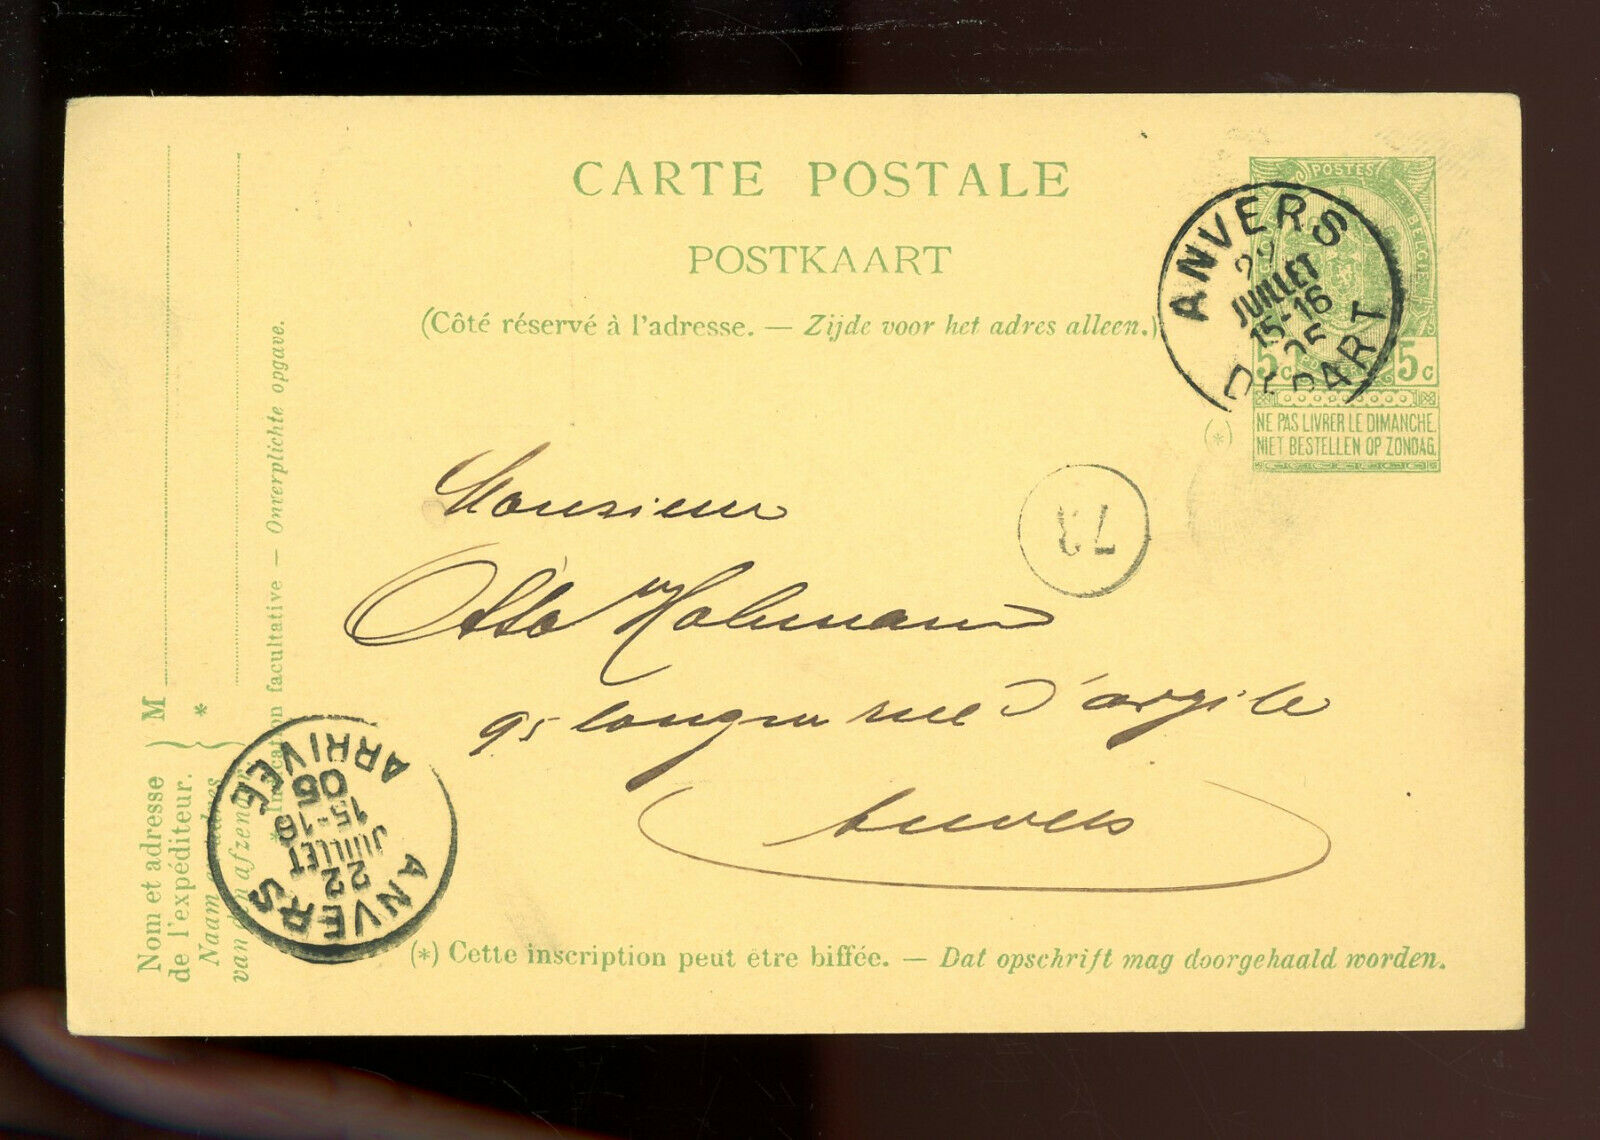 CARTE POSTALE
POSTKAART
(Côté réservé à l'adresse. — Zijde voor het adres alleen.)
POSTES
BELGIE
5c 5c
NE PAS LIVRER LE DIMANCHE.
NIET BESTELLEN OP ZONDAG.
(*)
ANVERS
22
JUILLET
15-16
05
DEPART
73
Monsieur
Otto Hohmann
95 longue rue d'argile
Anvers
M
*
Nom et adresse
de l'expéditeur.
Naam en adres
van den afzender.
* Indication facultative — Onverplichte opgave.
ANVERS
22
JUILLET
15-16
05
ARRIVEE
(*) Cette inscription peut être biffée. — Dat opschrift mag doorgehaald worden.